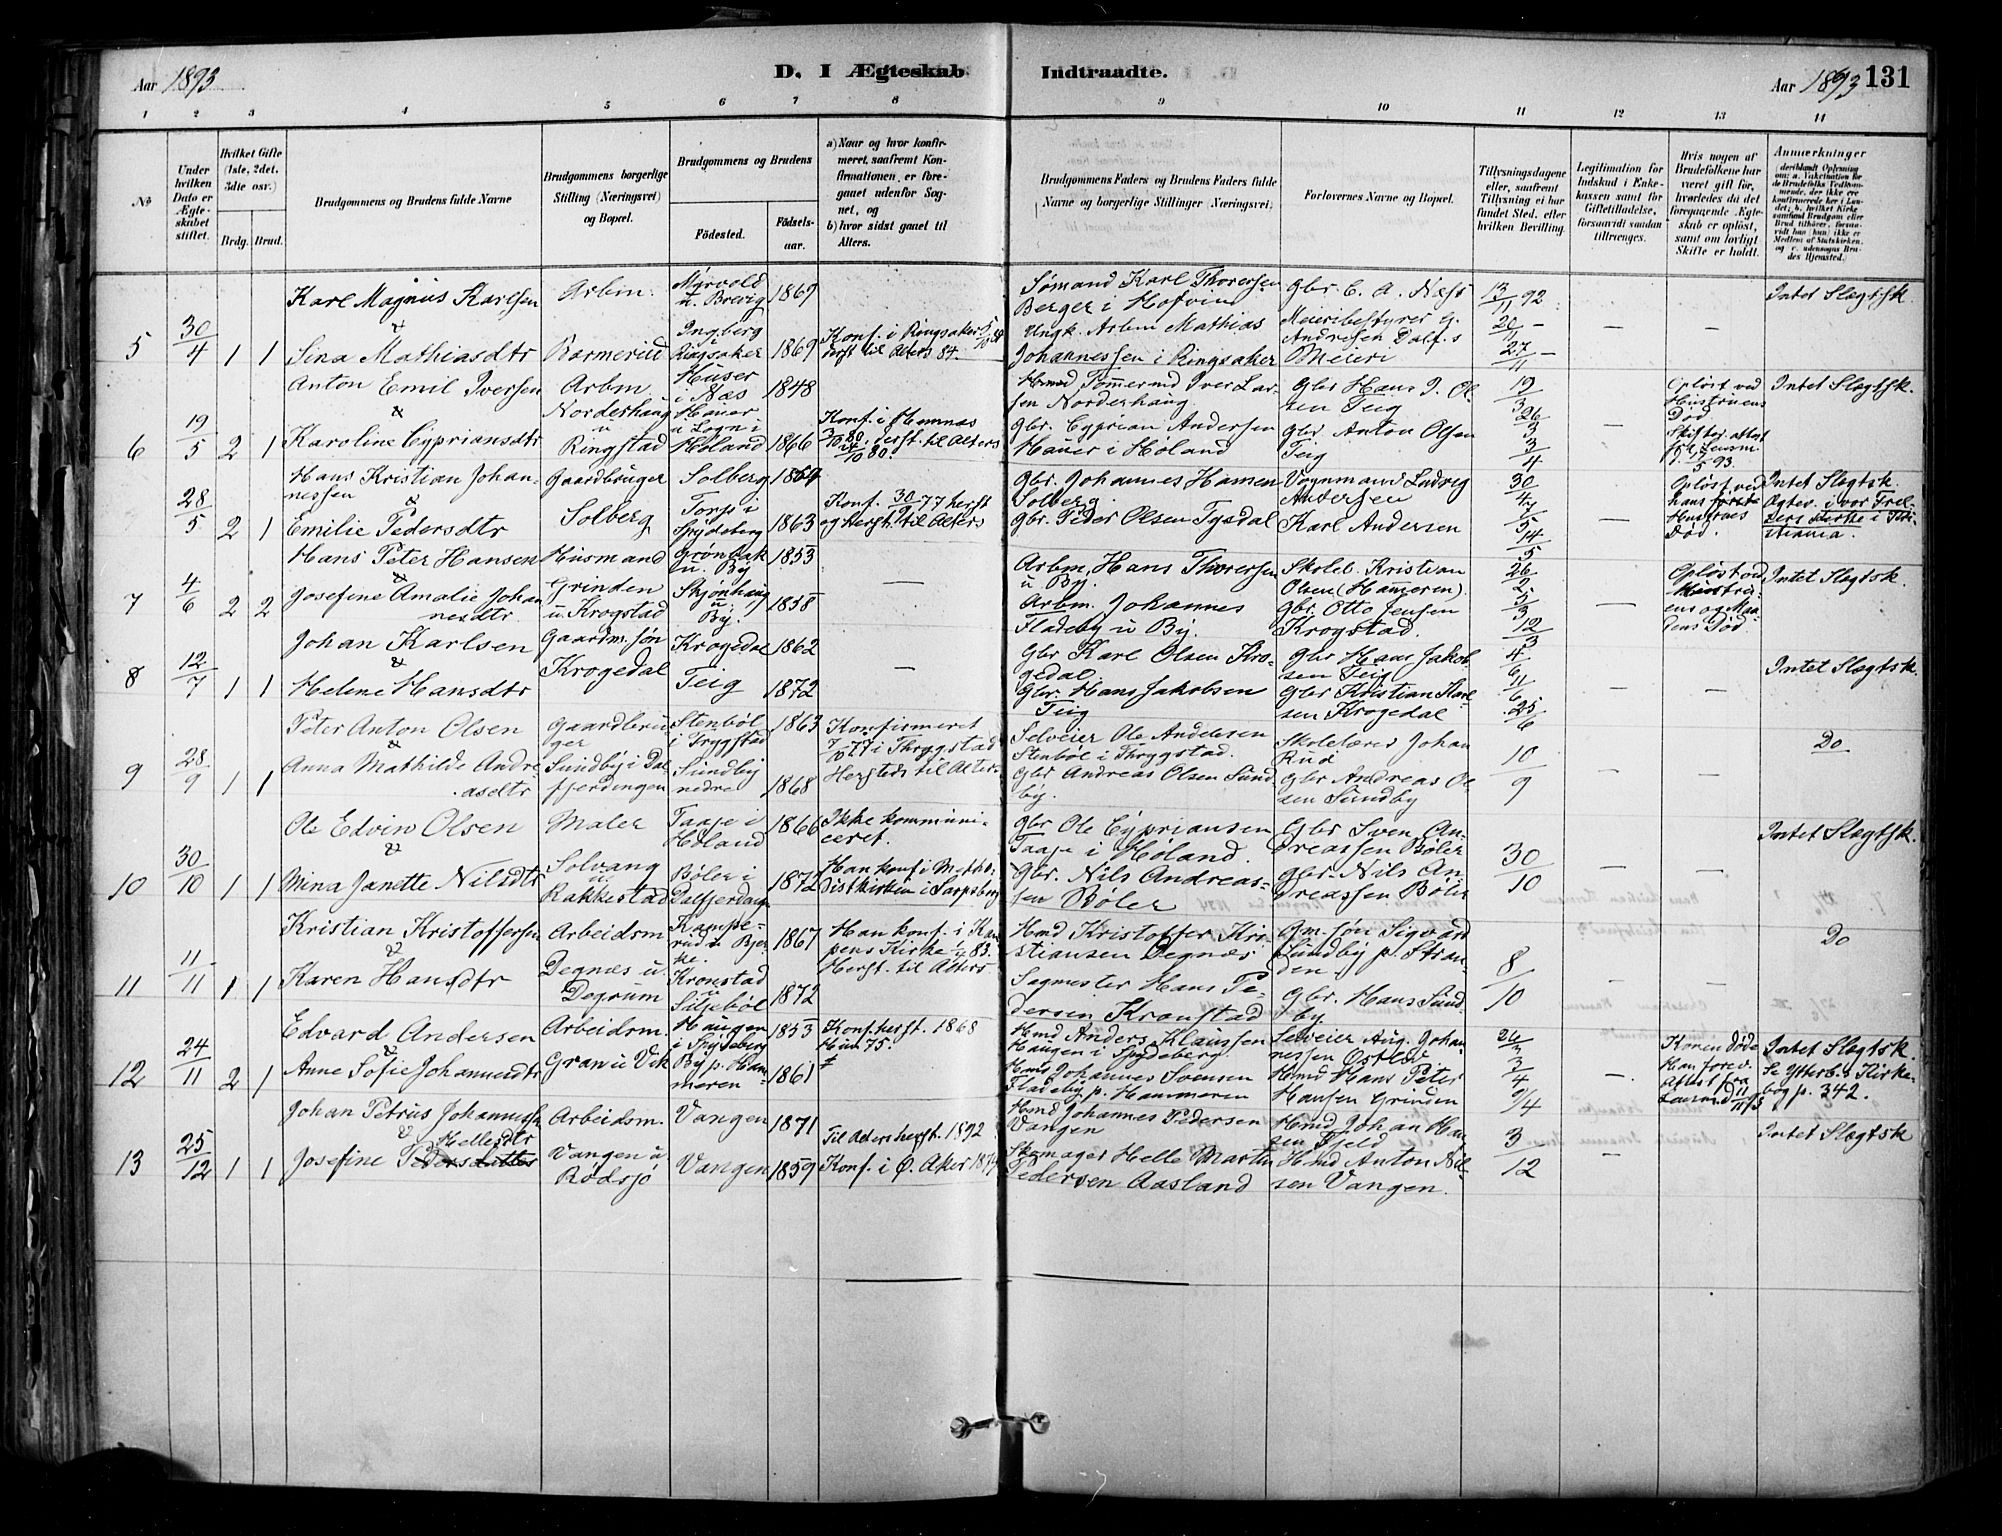 Aar 1893
D. I Ægteskab
Indtraadte.
Aar 1893
131
1 2 3 4 5 6 7 8 9 10 11 12 13 14
No
Under hvilken Dato er Ægteskabet stiftet.
Hvilket Gifte (1ste, 2det, 3die osv.)
Brdg. Brud.
Brudgommens og Brudens fulde Navne
Brudgommens borgerlige Stilling (Næringsvei) og Bopæl.
Brudgommens og Brudens
Fødested.
Fødselsaar.
a) Naar og hvor konfirmeret, saafremt Konfirmationen er foregaaet udenfor Sognet, og
b) hvor sidst gaaet til Alters.
Brudgommens Faders og Brudens Faders fulde Navne og borgerlige Stillinger (Næringsvei)
Forlovernes Navne og Bopæl.
Tillysningsdagene eller, saafremt Tillysning ei har fundet Sted, efter hvilken Bevilling.
Legitimation for Indskud i Enkekassen samt for Giftetilladelse, forsaavidt saadan tiltrænges.
Hvis nogen af Brudefolkene har været gift før, hvorledes da det foregaaende Ægteskab er opløst, samt om lovligt Skifte er holdt.
Anmærkninger
5 30/4 1 1
Karl Magnus Karlsen
&
Sina Mathiasdtr
Arbm.
Karmerud
Brevig 1869
Ingberg i Ringsaker 1869
Konf. i Ringsaker
herst til Alters 84.
Sømand Karl Thoresen
Berger i Hofvin
Ungk. Arbm Mathias
Johannessen i Ringsaker
Gbr. C. A. Næss
Meieribestyrer
Andresen Dalf.s
Meieri
13/11 92
20/11 –
27/11 –
–
Intet Slægtsk.
6 19/5 2 1
Anton Emil Iversen
&
Karoline Cypriansdtr
Arbm
Norderhaug
u
Ringstad
Huser
i Næs 1848
Hauer
u Logn i
Høland 1866
Konf. i Hemnæs
herst. til Alters
Iver Larsen Norderhaug.
gbr. Cyprian Andersen
Hauer i Høland
Gbr Hans J. Olsen Teig
Gbr Anton Olsen
Teig
19/3
26/3
3/4
Opløst ved
Hustruens
Død
Intet Slægtsk.
28/5 2 1
Hans Kristian Johannessen
&
Emilie Pedersdtr
Gaardbruger
Solberg
Solberg 1864
i
Spydeberg 1863
Konf. 30/9 77 herst
og herst. til Alters
Gbr. Johannes Hansen
Solberg
gbr. Peder Olsen Tysdal
Vognmand Ludvig
Andersen
Karl Andersen
30/4
7/5
14/5
Opløst ved
hans første
Hustrues
Død.
Intet Slægtsk.
Ægtev. i vor Frelsers Kirke i Kristiania.
7 4/6 2 2
Hans Peter Hansen
&
Josefine Amalie Johannesdtr.
Husmand
Grinden
u. Krogstad
Grønbak
u. By 1853
Skjønhaug
u
By. 1858
–
Arbm. Hans Thoresen
u By.
Arbm. Johannes
Fladeby u By.
Skolel. Kristian
Olsen (Hameren)
Gbr. Otto Jensen
Krogstad.
26/2
5/3
12/3
–
Opløst ved
Hustruens og Mandens Død.
Intet Slægtsk.
8 12/7 1 1
Johan Karlsen
&
Helene Hansdtr
Gaardm. søn
Krogedal
Krogedal 1862
Teig 1872
–
Gbr Karl Olsen Krogedal.
Gbr. Hans Jakobsen
Teig
Gbr Hans Jakobsen Teig
Gbr Kristian Karlsen Krogedal
4/6
11/6
25/6
– –
Intet Slægtsk.
9 28/9 1 1
Peter Anton Olsen
&
Anna Mathilde Andreasdtr
Gaardbruger
Sundby i Dalfjerdingen
Stenbøl
i Trygstad 1863
Sundby
nedre 1868
Konfirmeret
7/10 77 i Thrygstad
Hersteds til Alters
Selveier Ole Andersen
Stenbøl i Thrygstad.
Gbr Andreas Olsen Sundby.
Skolelærer Johan
Rud
Gbr Andreas Olsen Sundby
10/9
– –
Do
10 30/10 1 1
Ole Edvin Olsen
&
Mina Janette Nilsdtr
Maler
Solvang
u
Rakkestad
Taaje i
Høland 1866
Bøler i
Dalfjerdingen 1872
Ikke kommuniceret.
Han konf. i Methodistkirken i Sarpsborg
gbr Ole Cypriansen
Taaje i Høland.
Gbr. Nils Andreassen Bøler
Gbr Sven Andreassen Bøler
Gbr. Nils Andreassen Bøler
30/10
– –
Intet Slægtsk.
11 11/11 1 1
Kristian Kristoffersen
&
Karen Hansdtr
Arbeidsm
Degnæs u.
Degrum
Kamperud 1867
Kronstad
u
Siljebøl 1872
Han konf. i Kampens Kirke 1/4 83.
Herst. til Alters
Hmd Kristoffer Kristiansen Degnæs
Sagmester Hans Pedersen Kronstad
Gm. søn Sigvard
Sundby p. Stranden
Gbr. Hans Sundby
8/10
– –
Do
12 24/11 2 1
Edvard Andersen
&
Anne Sofie Johannesdtr
Arbeidsm.
Gran u Vik
Haugen
i Spydeberg 1853
By p. Hammeren 1861
Konf. herst. 1868
Hun 75.
Hmd Anders Klaussen
Haugen i Spydeberg.
Hmd Johannes Svensen
Fladeby p. Hammeren
Selveier Aug. Johannessen Østlid
Hmd Hans Peter
Hansen Grinden
26/3
3/4
9/4
–
Konen døde
Attest fra
Intet Slægtsk.
Se Ytterbø Kirkebog p. 342.
13 25/12 1 1
Johan Petrus Johannessen
&
Hellesdtr
Josefine Pedersdatter
Arbeidsm.
Vangen u
Rødsjø
Vangen 1871
Vangen 1859
Til Alters herst. 1892
Konf. i Ø. Aker 1874
Hmd Johannes Pedersen
Vangen
Skomager Helle Martin
Pedersen Aasland
Hmd Johan Hansen Fjeld
Hmd Anton Nilsen Vangen.
3/12
–
Intet Slægtsk